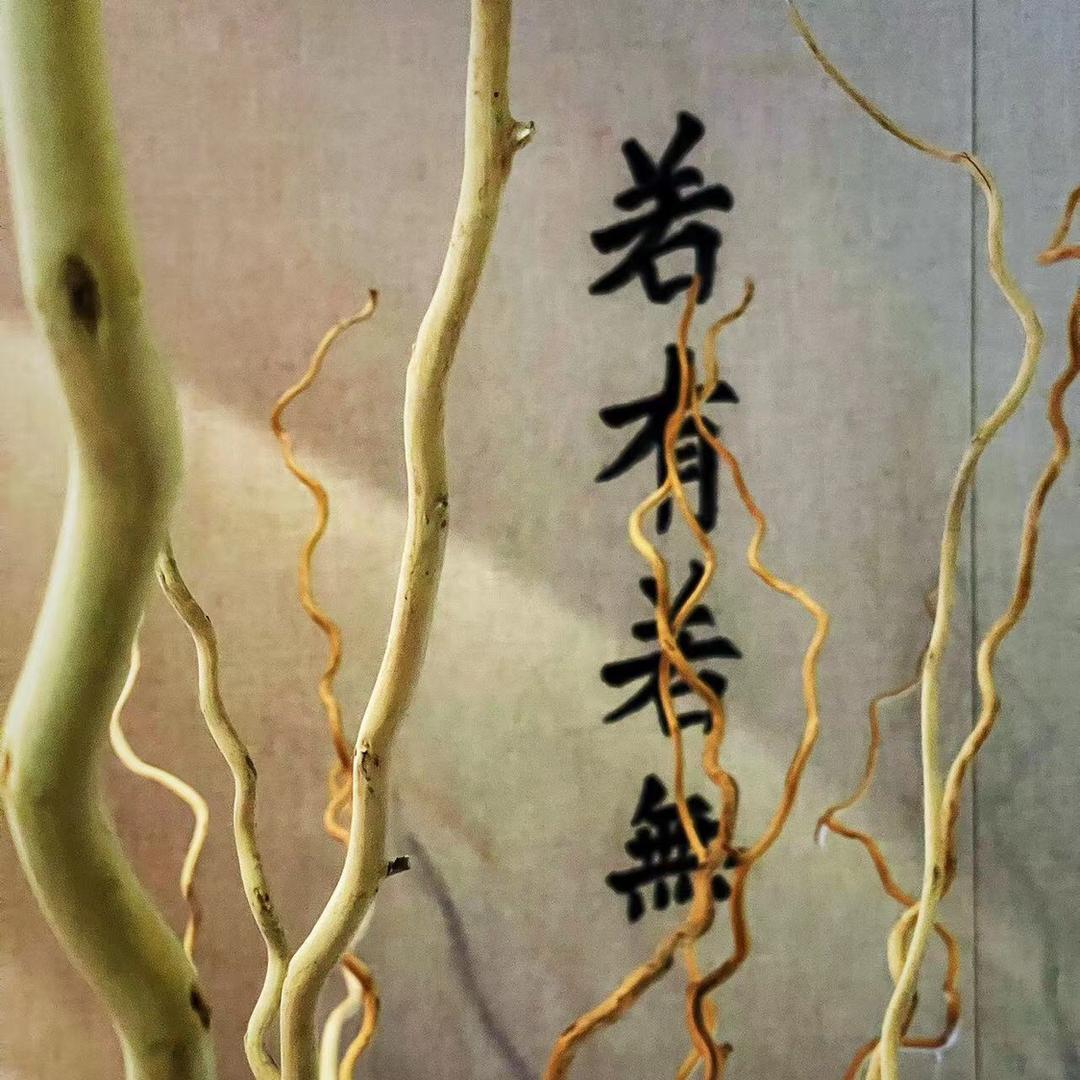 若有若無